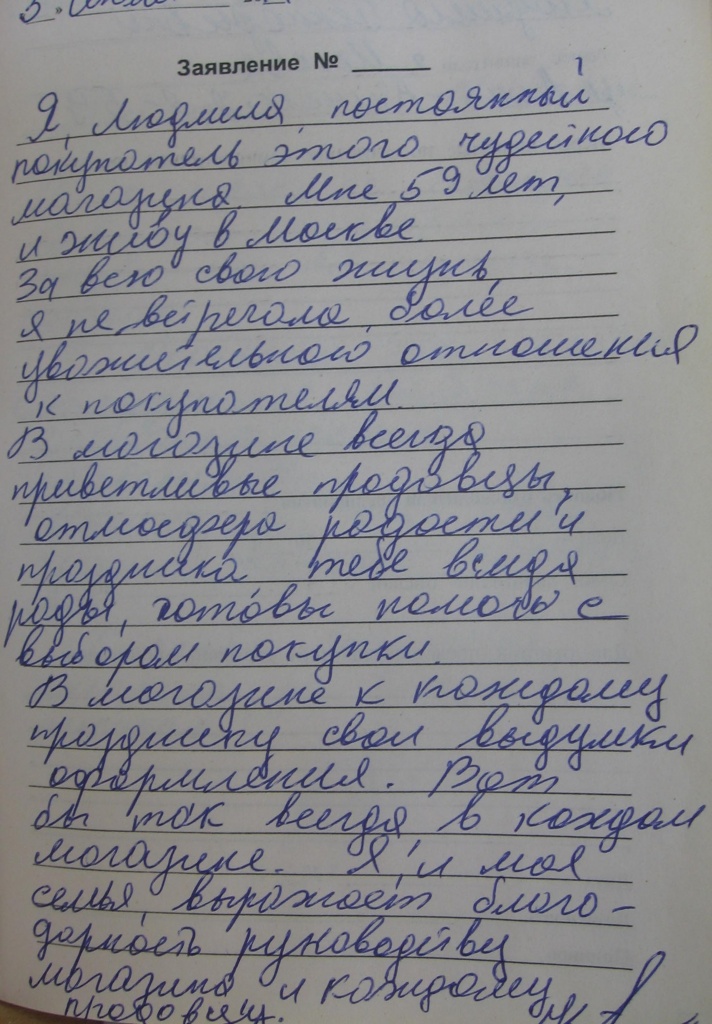 Заявление № ______
Я, Людмила, постоянный
покупатель этого чудейного
магазина. Мне 59 лет,
и живу в Москве.
За всю свою жизнь,
я не встречала более
уважительного отношения
к покупателям.
В магазине всегда
приветливые продавцы,
атмосфера радости и
праздника тебе всегда
рады, готовы помочь с
выбором покупки.
В магазине к каждому
празднику свои выдумки
оформления. Вот
бы так всегда в каждом
магазине. Я, и моя
семья, выражает благо-
дарность руководству
магазина и каждому
продавцу.